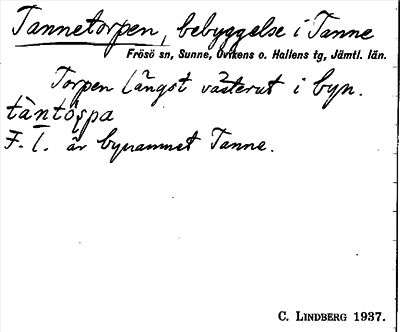 Tannetorpen, bebyggelse i Tanne
Frösö sn, Sunne, Ovikens o. Hallens tg, Jämtl. län.
Torpen längst västerut i byn.
tàntǫ̀spa
F. l. är bynamnet Tanne.
C. LINDBERG 1937.